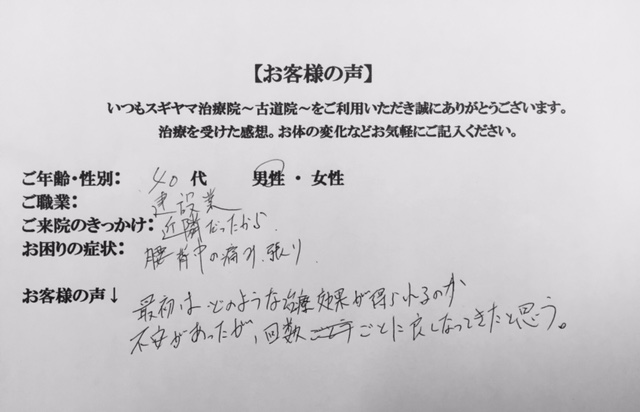 【お客様の声】
いつもスギヤマ治療院～古道院～をご利用いただき誠にありがとうございます。
治療を受けた感想。お体の変化などお気軽にご記入ください。
ご年齢・性別： 40 代 男性 ・ 女性
ご職業： 建設業
ご来院のきっかけ： 近隣だったから
お困りの症状： 腰背中の痛み、張り
お客様の声↓ 最初はどのような治療効果が得られるのか
不安があったが、回数ごとに良くなってきたと思う。